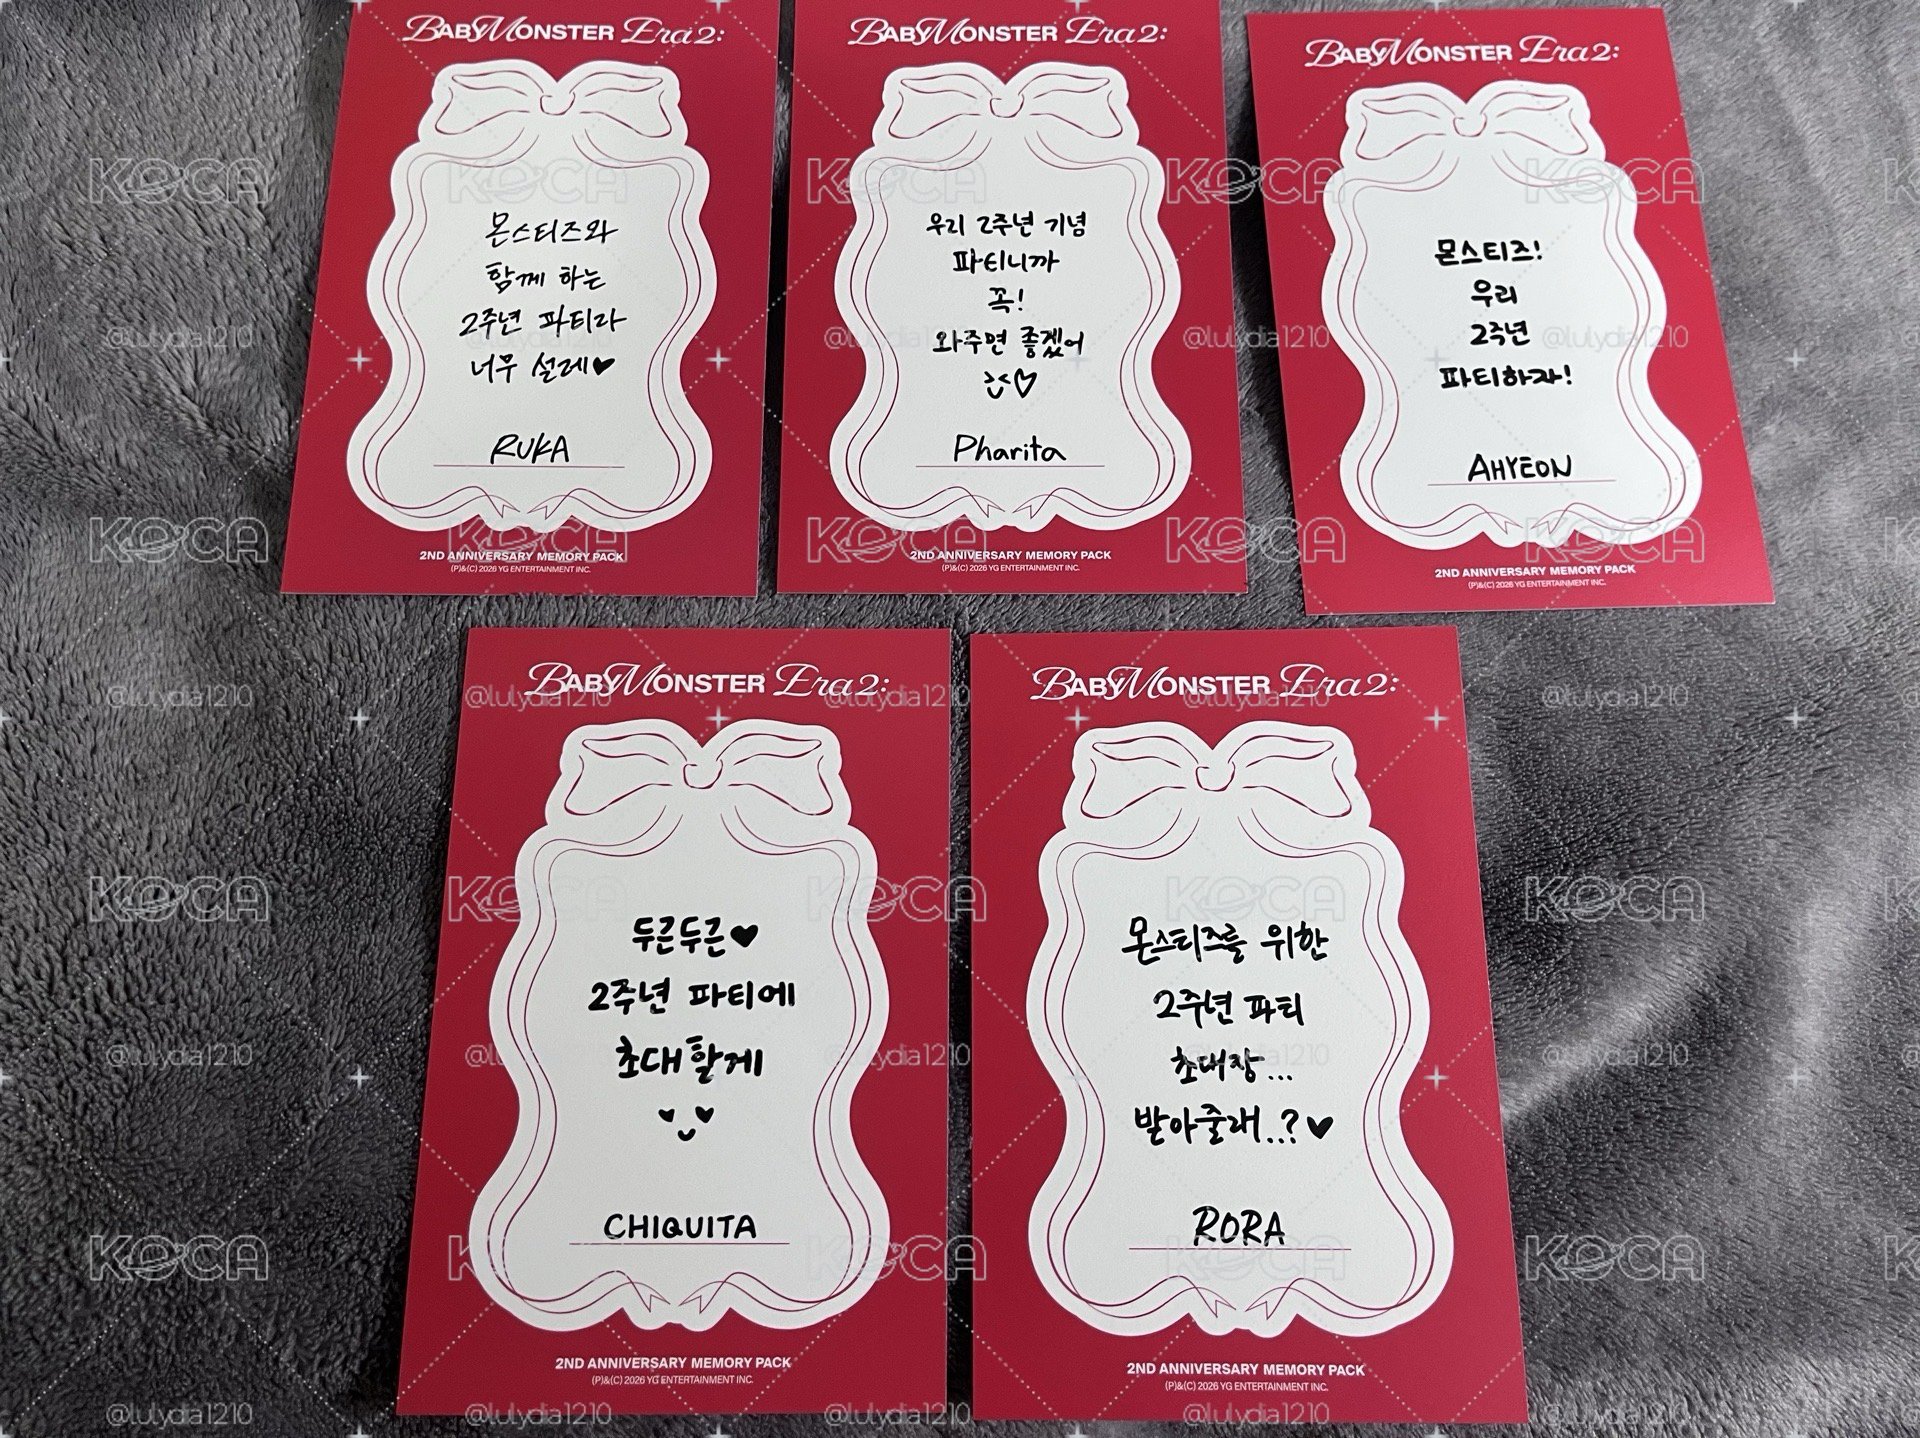 BABYMONSTER Era 2:
몬스티즈와
함께 하는
2주년 파티라
너무 설레♥
RUKA
2ND ANNIVERSARY MEMORY PACK
(P)&(C) 2026 YG ENTERTAINMENT INC.
BABYMONSTER Era 2:
우리 2주년 기념
파티니까
꼭!
와주면 좋겠어
♡
Pharita
2ND ANNIVERSARY MEMORY PACK
(P)&(C) 2026 YG ENTERTAINMENT INC.
BABYMONSTER Era 2:
몬스티즈!
우리
2주년
파티하자!
AHYEON
2ND ANNIVERSARY MEMORY PACK
(P)&(C) 2026 YG ENTERTAINMENT INC.
BABYMONSTER Era 2:
두근두근♥
2주년 파티에
초대할게
CHIQUITA
2ND ANNIVERSARY MEMORY PACK
(P)&(C) 2026 YG ENTERTAINMENT INC.
BABYMONSTER Era 2:
몬스티즈를 위한
2주년 파티
초대장...
받아줄래..?♥
RORA
2ND ANNIVERSARY MEMORY PACK
(P)&(C) 2026 YG ENTERTAINMENT INC.
KOCA
@lulydia1210